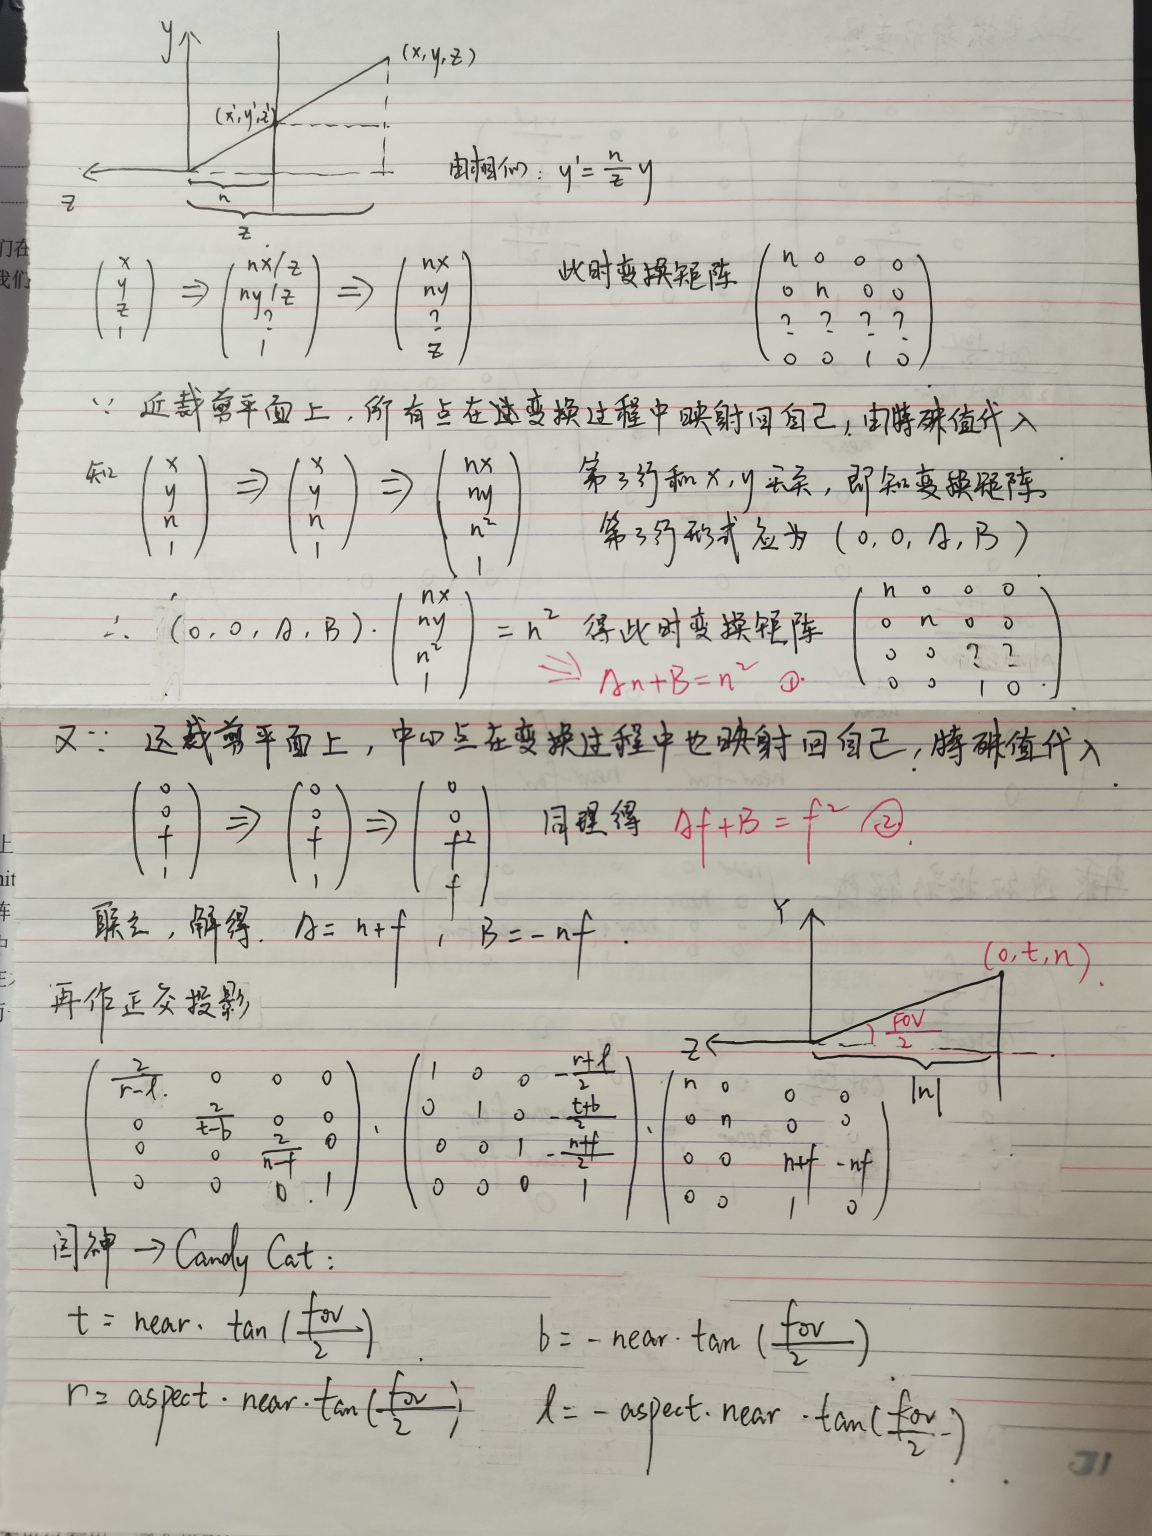 y
(x, y, z)
(x', y', z')
z
n
z
由相似: y' = n/z y
(x y z 1) ⇒ (nx/z ny/z ? 1) ⇒ (nx ny ? z) 此时变换矩阵 (n 0 0 0 / 0 n 0 0 / ? ? ? ? / 0 0 1 0)
∵ 近裁剪平面上, 所有点在这变换过程中映射回自己, 由特殊值代入
知 (x y n 1) ⇒ (x y n 1) ⇒ (nx ny n² 1) 第3行和x, y无关, 即知变换矩阵
第3行形式应为 (0, 0, A, B)
∴ (0, 0, A, B) · (nx ny n² 1) = n² 得此时变换矩阵 (n 0 0 0 / 0 n 0 0 / 0 0 ? ? / 0 0 1 0)
⇒ An+B=n² ①
又∵ 远裁剪平面上, 中心点在变换过程中也映射回自己, 特殊值代入
(0 0 f 1) ⇒ (0 0 f 1) ⇒ (0 0 f² f) 同理得 Af+B = f² ②
联立, 解得. A = n+f , B = -nf .
Y
(0, t, n)
FOV/2
Z
|n|
再作正交投影
(2/(r-l) 0 0 0 / 0 2/(t-b) 0 0 / 0 0 2/(n-f) 0 / 0 0 0 1) · (1 0 0 -(r+l)/2 / 0 1 0 -(t+b)/2 / 0 0 1 -(n+f)/2 / 0 0 0 1) · (n 0 0 0 / 0 n 0 0 / 0 0 n+f -nf / 0 0 1 0)
闫神 → Candy Cat:
t = near · tan(fov/2) b = -near · tan(fov/2)
r = aspect · near · tan(fov/2) l = -aspect · near · tan(fov/2)